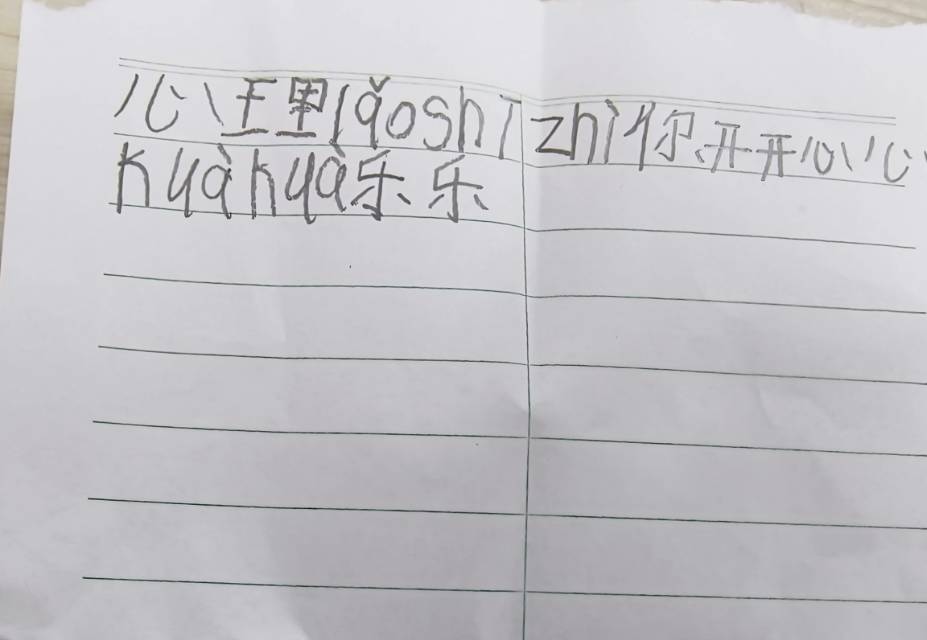 心王里lǎoshī zhì你开开心心
kuàkuà乐乐